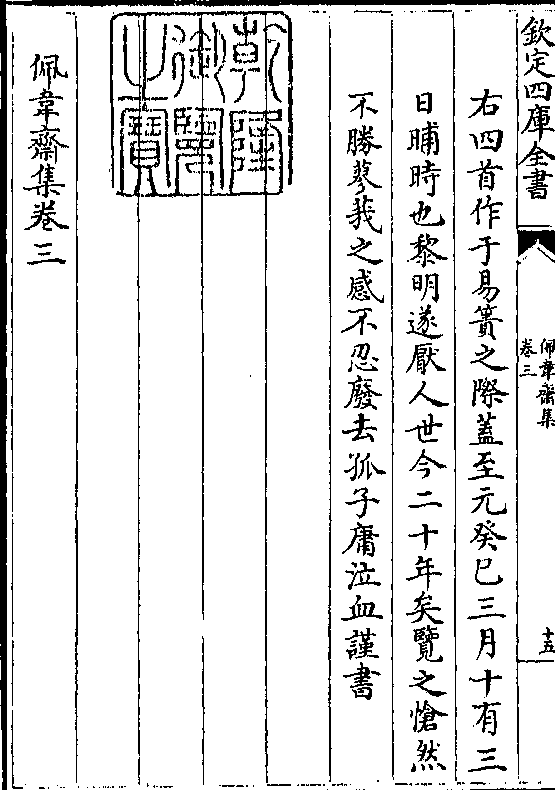 欽定四庫全書
佩韋齋集
卷三
十五
右四首作于易簀之際蓋至元癸巳三月十有三
日晡時也黎明遂厭人世今二十年矣覽之愴然
不勝蓼莪之感不忍廢去孤子庸泣血謹書
乾隆御覽之寶
佩韋齋集卷三